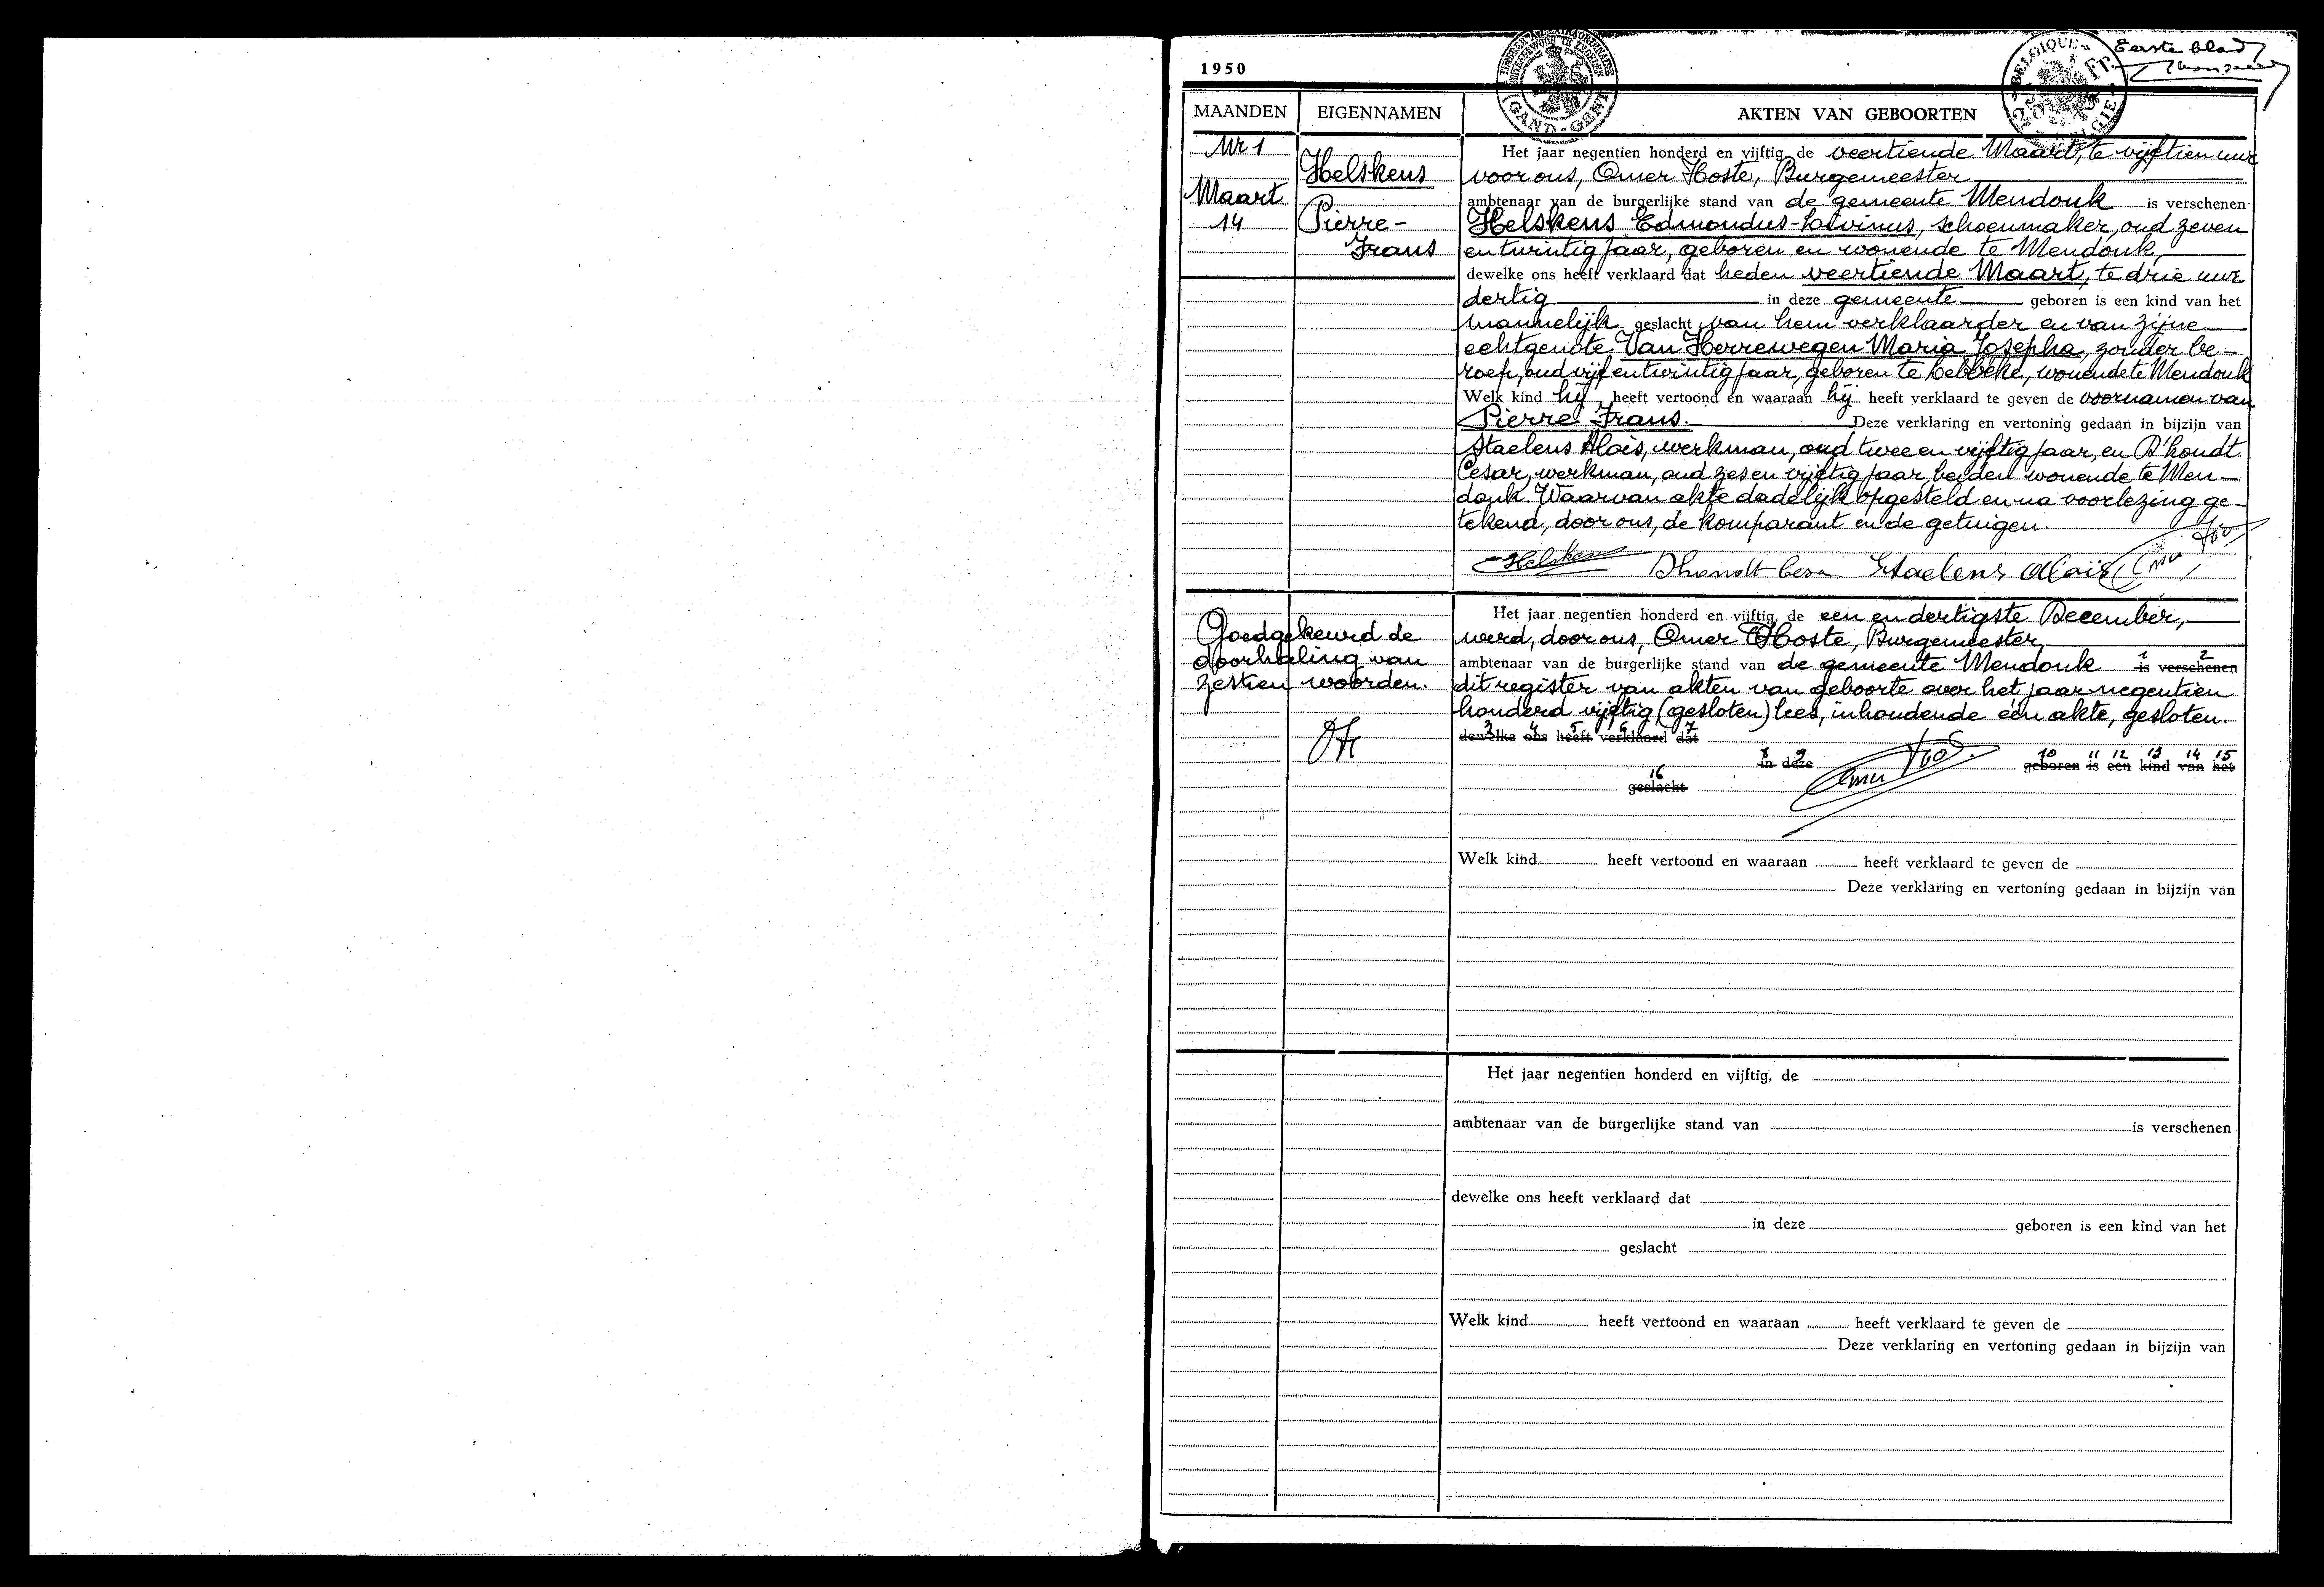 Eerste blad
1950
TIMBRE A L'EXTRAORDINAIRE
BUITENGEWOON TE ZEGELEN
GAND-GENT
BELGIQUE
2 Fr.
BELGIE
MAANDEN EIGENNAMEN AKTEN VAN GEBOORTEN
Nr 1
Maart
14
Helskens
Pierre-
Frans
Het jaar negentien honderd en vijftig, de veertiende Maart, te vijftien uur
voor ons, Omer Hoste, Burgemeester
ambtenaar van de burgerlijke stand van de gemeente Mendonk is verschenen
Helskens Edmondus-Livinus, schoenmaker, oud zeven
en twintig jaar, geboren en wonende te Mendonk,
dewelke ons heeft verklaard dat heden veertiende Maart, te drie uur
dertig in deze gemeente geboren is een kind van het
mannelijk geslacht van hem verklaarder en van zijne
echtgenote Van Herrewegen Maria Josepha, zonder be-
roep, oud vijf en twintig jaar, geboren te Lebbeke, wonende te Mendonk
Welk kind hij heeft vertoond en waaraan hij heeft verklaard te geven de voornamen van
Pierre Frans. Deze verklaring en vertoning gedaan in bijzijn van
Staelens Aloïs, werkman, oud twee en vijftig jaar, en D'hondt
Cesar, werkman, oud zes en vijftig jaar, beiden wonende te Men-
donk. Waarvan akte dadelijk opgesteld en na voorlezing ge-
tekend, door ons, de komparant en de getuigen.
Helskens Dhondt Cesar Staelens Aloïs
Goedgekeurd de
doorhaling van
zestien woorden.
OH
Het jaar negentien honderd en vijftig, de een en dertigste December,
werd, door ons, Omer Hoste, Burgemeester,
1 2
ambtenaar van de burgerlijke stand van de gemeente Mendonk is verschenen
dit register van akten van geboorte over het jaar negentien
honderd vijftig (gesloten) lees, inhoudende één akte, gesloten.
3 4 5 6 7
dewelke ons heeft verklaard dat
8 9 10 11 12 13 14 15
in deze geboren is een kind van het
16
geslacht
Welk kind heeft vertoond en waaraan heeft verklaard te geven de
Deze verklaring en vertoning gedaan in bijzijn van
Het jaar negentien honderd en vijftig, de
ambtenaar van de burgerlijke stand van is verschenen
dewelke ons heeft verklaard dat
in deze geboren is een kind van het
geslacht
Welk kind heeft vertoond en waaraan heeft verklaard te geven de
Deze verklaring en vertoning gedaan in bijzijn van